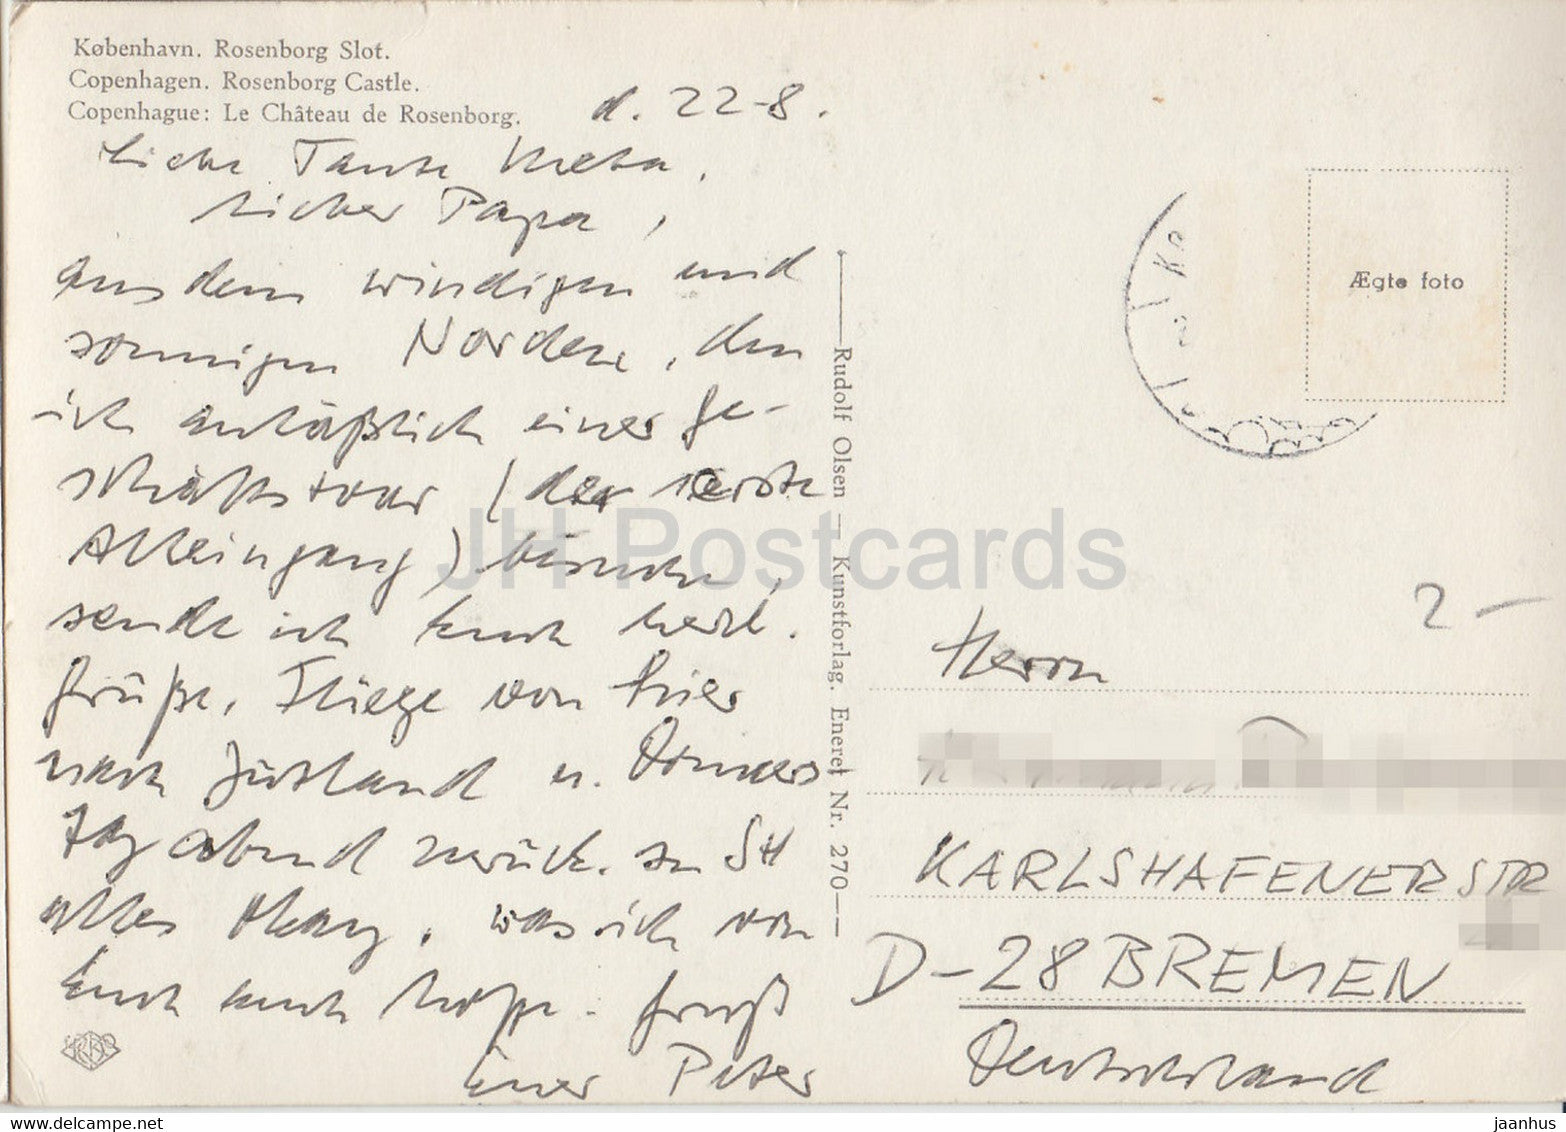 København. Rosenborg Slot.
Copenhagen. Rosenborg Castle.
Copenhague: Le Château de Rosenborg.
d. 22-8.
Liebe Tante Meta,
lieber Papa,
aus dem windigen und
sonnigen Norden, den
ich anläßlich einer Ge-
schäftstour (der erste
Alleingang) besuche,
sende ich Euch herzl.
Grüße. Fliege von hier
nach Jütland u. Donners
tag abend zurück. In SH
alles okay, was ich von
Euch auch hoffe. Gruß
Euer Peter
Rudolf Olsen — Kunstforlag. Eneret Nr. 270
Ægte foto
2-
Herrn
KARLSHAFENERSTR
D-28 BREMEN
Deutschland
JH Postcards
delcampe.net
jaanhus